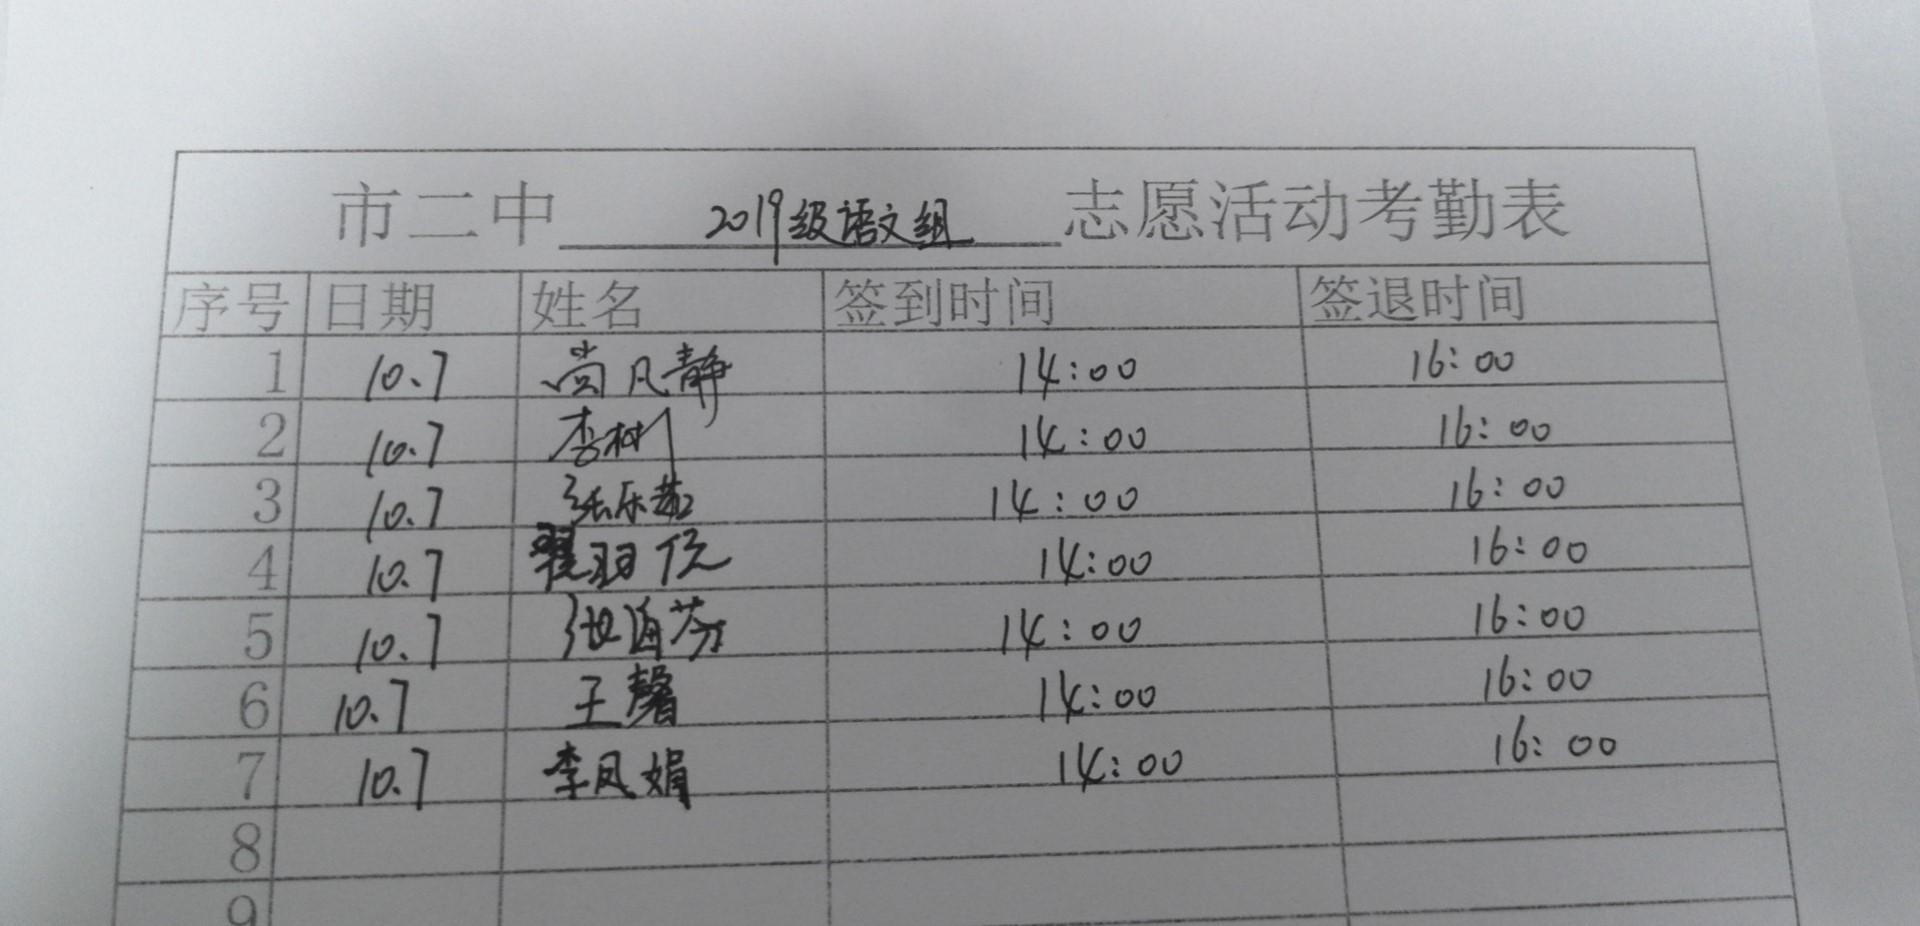 市二中2019级语文组志愿活动考勤表
序号 日期 姓名 签到时间 签退时间
1 10.7 尚凡静 14:00 16:00
2 10.7 李树 14:00 16:00
3 10.7 张乐茹 14:00 16:00
4 10.7 翟羽佼 14:00 16:00
5 10.7 张海芬 14:00 16:00
6 10.7 王馨 14:00 16:00
7 10.7 李凤娟 14:00 16:00
8
9